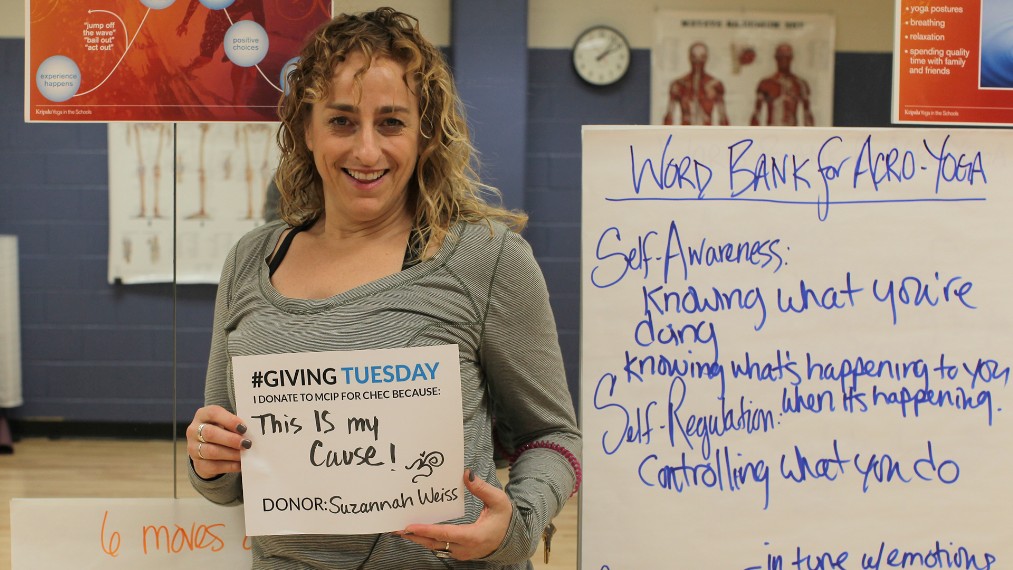 "jump off
the wave"
"bail out"
"act out"
experience
happens
positive
choices
Kripalu Yoga in the Schools
• yoga postures
• breathing
• relaxation
• spending quality
time with family
and friends
Kripalu Yoga in the Schools
#GIVING TUESDAY
I DONATE TO MCIP FOR CHEC BECAUSE:
This IS my
Cause!
DONOR: Suzannah Weiss
6 moves
WORD BANK for ACRO-YOGA
Self-Awareness:
Knowing what you're
doing
Knowing what's happening to you
when it's happening.
Self-Regulation:
Controlling what you do
- in tune w/emotions